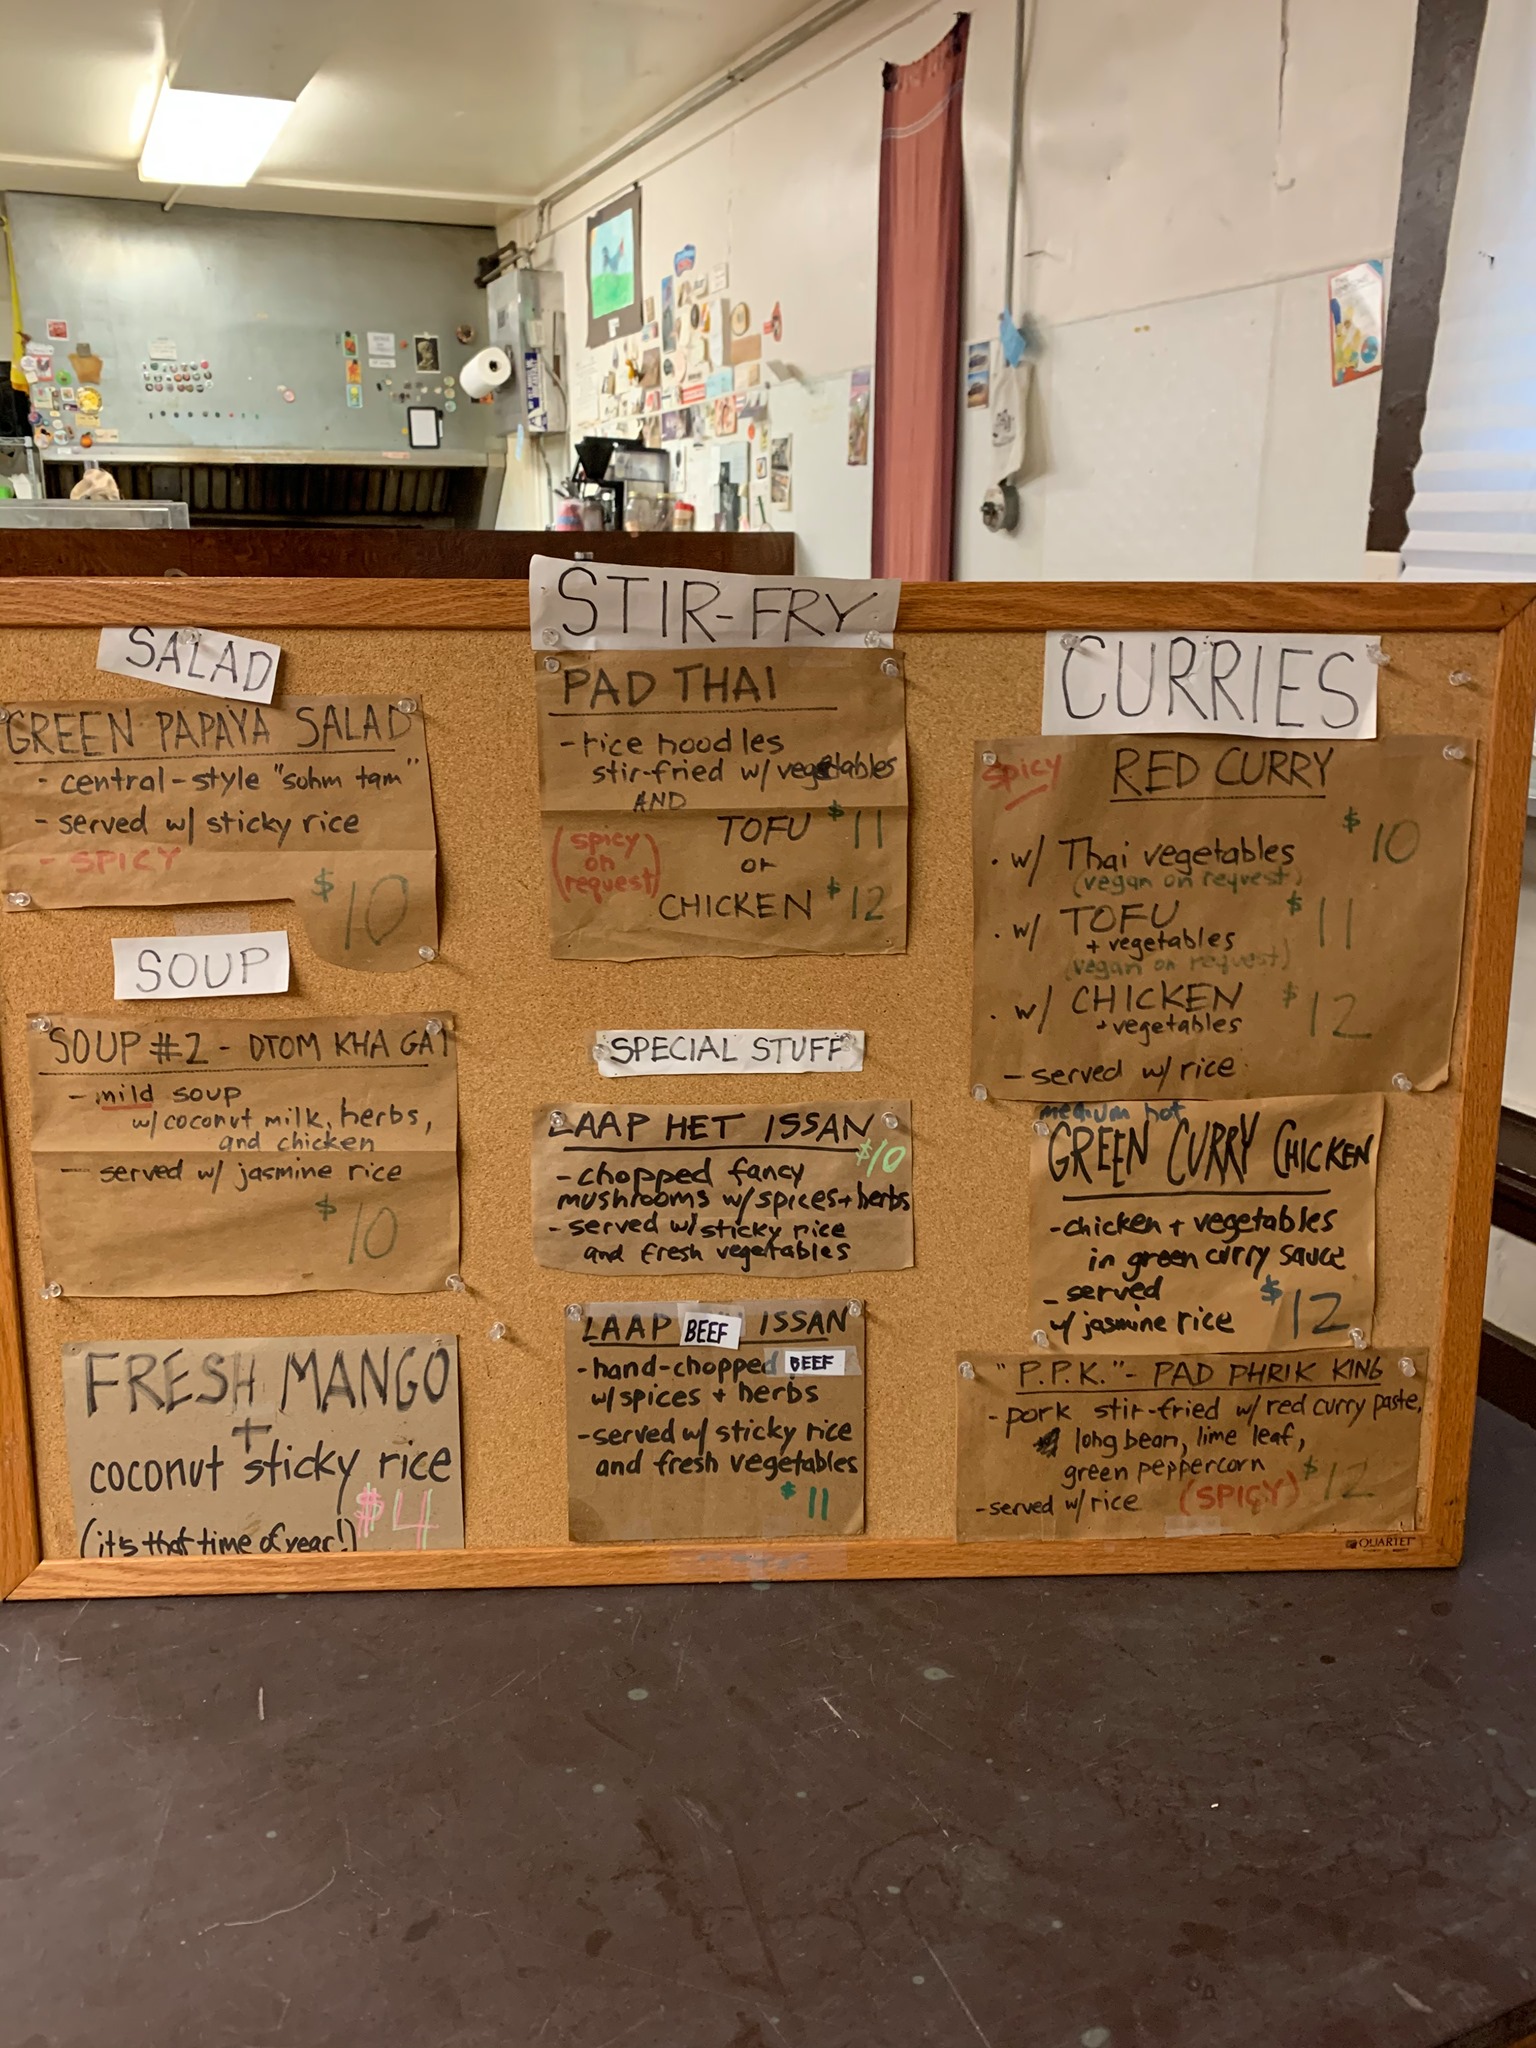 SALAD
GREEN PAPAYA SALAD
- central-style "sohm tam"
- served w/ sticky rice
- SPICY
$10
SOUP
SOUP #2 - DTOM KHA GAI
- mild soup
w/ coconut milk, herbs,
and chicken
- served w/ jasmine rice
$10
FRESH MANGO
+
coconut sticky rice
$4
(it's that time of year!)
STIR-FRY
PAD THAI
- rice noodles
stir-fried w/ vegetables
AND
TOFU $11
or
CHICKEN $12
(spicy
on
request)
SPECIAL STUFF
LAAP HET ISSAN
$10
- chopped fancy
mushrooms w/ spices + herbs
- served w/ sticky rice
and fresh vegetables
LAAP BEEF ISSAN
- hand-chopped BEEF
w/ spices + herbs
- served w/ sticky rice
and fresh vegetables
$11
CURRIES
spicy
RED CURRY
· w/ Thai vegetables $10
(vegan on request)
· w/ TOFU $11
+ vegetables
(vegan on request)
· w/ CHICKEN $12
+ vegetables
- served w/ rice
medium hot
GREEN CURRY CHICKEN
- chicken + vegetables
in green curry sauce
- served
w/ jasmine rice $12
"P.P.K." - PAD PHRIK KING
- pork stir-fried w/ red curry paste,
long bean, lime leaf,
green peppercorn
- served w/ rice (SPICY) $12
QUARTET